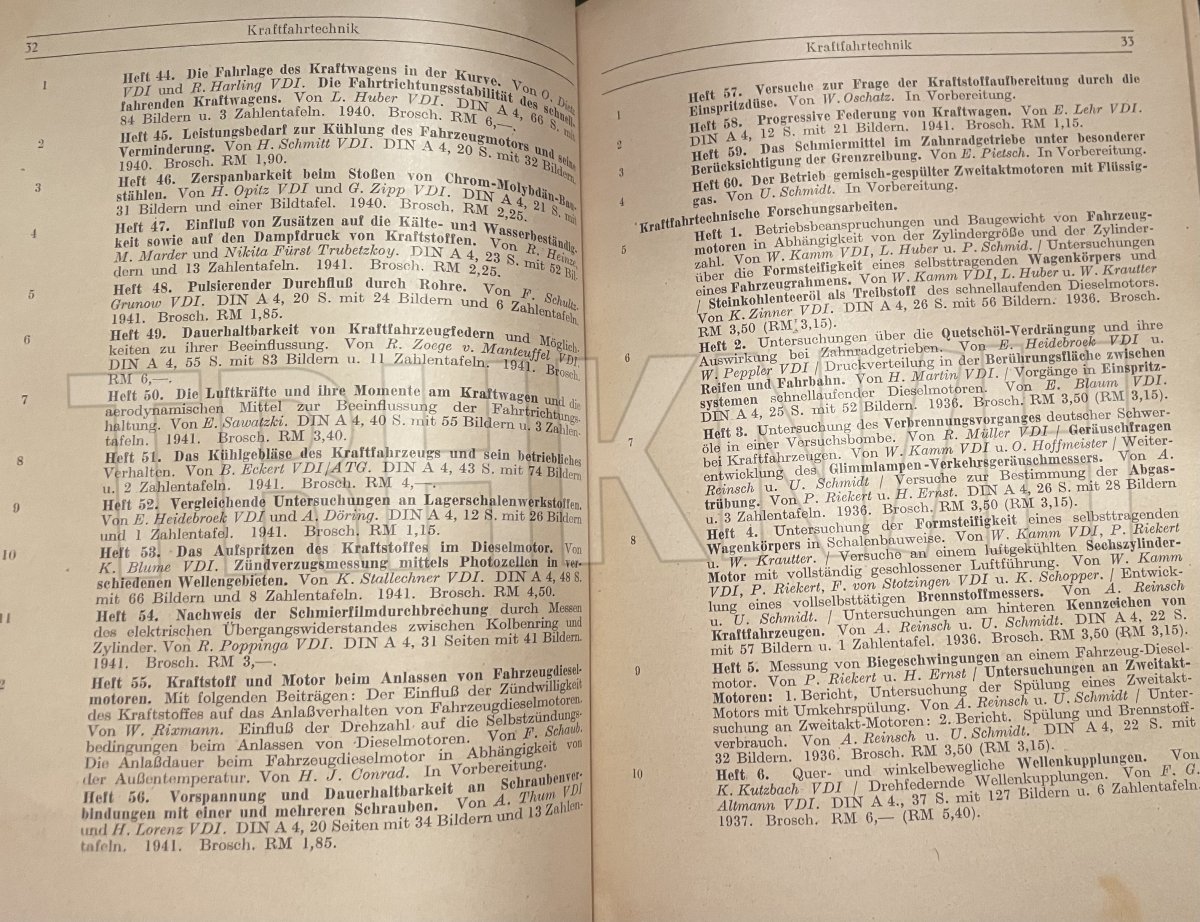 32
Kraftfahrtechnik
1
Heft 44. Die Fahrlage des Kraftwagens in der Kurve. Von O. Dietz
VDI und R. Harling VDI. Die Fahrtrichtungsstabilität des schnell-
fahrenden Kraftwagens. Von L. Huber VDI. DIN A 4, 66 S. mit
84 Bildern u. 3 Zahlentafeln. 1940. Brosch. RM 6,—.
2
Heft 45. Leistungsbedarf zur Kühlung des Fahrzeugmotors und seine
Verminderung. Von H. Schmitt VDI. DIN A 4, 20 S. mit 32 Bildern.
1940. Brosch. RM 1,90.
3
Heft 46. Zerspanbarkeit beim Stoßen von Chrom-Molybdän-Bau-
stählen. Von H. Opitz VDI und G. Zipp VDI. DIN A 4, 21 S. mit
31 Bildern und einer Bildtafel. 1940. Brosch. RM 2,25.
4
Heft 47. Einfluß von Zusätzen auf die Kälte- und Wasserbeständig-
keit sowie auf den Dampfdruck von Kraftstoffen. Von R. Heinze,
M. Marder und Nikita Fürst Trubetzkoy. DIN A 4, 23 S. mit 52 Bil-
dern und 13 Zahlentafeln. 1941. Brosch. RM 2,25.
5
Heft 48. Pulsierender Durchfluß durch Rohre. Von F. Schultz-
Grunow VDI. DIN A 4, 20 S. mit 24 Bildern und 6 Zahlentafeln.
1941. Brosch. RM 1,85.
6
Heft 49. Dauerhaltbarkeit von Kraftfahrzeugfedern und Möglich-
keiten zu ihrer Beeinflussung. Von R. Zoege v. Manteuffel VDI.
DIN A 4, 55 S. mit 83 Bildern u. 11 Zahlentafeln. 1941. Brosch.
RM 6,—.
7
Heft 50. Die Luftkräfte und ihre Momente am Kraftwagen und die
aerodynamischen Mittel zur Beeinflussung der Fahrtrichtungs-
haltung. Von E. Sawatzki. DIN A 4, 40 S. mit 55 Bildern u. 3 Zahlen-
tafeln. 1941. Brosch. RM 3,40.
8
Heft 51. Das Kühlgebläse des Kraftfahrzeugs und sein betriebliches
Verhalten. Von B. Eckert VDI/ATG. DIN A 4, 43 S. mit 74 Bildern
u. 2 Zahlentafeln. 1941. Brosch. RM 4,—.
9
Heft 52. Vergleichende Untersuchungen an Lagerschalenwerkstoffen.
Von E. Heidebroek VDI und A. Döring. DIN A 4, 12 S. mit 26 Bildern
und 1 Zahlentafel. 1941. Brosch. RM 1,15.
10
Heft 53. Das Aufspritzen des Kraftstoffes im Dieselmotor. Von
K. Blume VDI. Zündverzugsmessung mittels Photozellen in ver-
schiedenen Wellengebieten. Von K. Stallechner VDI. DIN A 4, 48 S.
mit 66 Bildern und 8 Zahlentafeln. 1941. Brosch. RM 4,50.
11
Heft 54. Nachweis der Schmierfilmdurchbrechung durch Messen
des elektrischen Übergangswiderstandes zwischen Kolbenring und
Zylinder. Von R. Poppinga VDI. DIN A 4, 31 Seiten mit 41 Bildern.
1941. Brosch. RM 3,—.
2
Heft 55. Kraftstoff und Motor beim Anlassen von Fahrzeugdiesel-
motoren. Mit folgenden Beiträgen: Der Einfluß der Zündwilligkeit
des Kraftstoffes auf das Anlaßverhalten von Fahrzeugdieselmotoren.
Von W. Rixmann. Einfluß der Drehzahl auf die Selbstzündungs-
bedingungen beim Anlassen von Dieselmotoren. Von F. Schaub.
Die Anlaßdauer beim Fahrzeugdieselmotor in Abhängigkeit von
der Außentemperatur. Von H. J. Conrad. In Vorbereitung.
Heft 56. Vorspannung und Dauerhaltbarkeit an Schraubenver-
bindungen mit einer und mehreren Schrauben. Von A. Thum VDI
und H. Lorenz VDI. DIN A 4, 20 Seiten mit 34 Bildern und 13 Zahlen-
tafeln. 1941. Brosch. RM 1,85.
Kraftfahrtechnik
33
Heft 57. Versuche zur Frage der Kraftstoffaufbereitung durch die
1
Einspritzdüse. Von W. Oschatz. In Vorbereitung.
Heft 58. Progressive Federung von Kraftwagen. Von E. Lehr VDI.
2
DIN A 4, 12 S. mit 21 Bildern. 1941. Brosch. RM 1,15.
Heft 59. Das Schmiermittel im Zahnradgetriebe unter besonderer
3
Berücksichtigung der Grenzreibung. Von E. Pietsch. In Vorbereitung.
Heft 60. Der Betrieb gemisch-gespülter Zweitaktmotoren mit Flüssig-
4
gas. Von U. Schmidt. In Vorbereitung.
Kraftfahrtechnische Forschungsarbeiten.
5
Heft 1. Betriebsbeanspruchungen und Baugewicht von Fahrzeug-
motoren in Abhängigkeit von der Zylindergröße und der Zylinder-
zahl. Von W. Kamm VDI, L. Huber u. P. Schmid. / Untersuchungen
über die Formsteifigkeit eines selbsttragenden Wagenkörpers und
eines Fahrzeugrahmens. Von W. Kamm VDI, L. Huber u. W. Krautter
/ Steinkohlenteeröl als Treibstoff des schnellaufenden Dieselmotors.
Von K. Zinner VDI. DIN A 4, 26 S. mit 56 Bildern. 1936. Brosch.
RM 3,50 (RM 3,15).
6
Heft 2. Untersuchungen über die Quetschöl-Verdrängung und ihre
Auswirkung bei Zahnradgetrieben. Von E. Heidebroek VDI u.
W. Peppler VDI / Druckverteilung in der Berührungsfläche zwischen
Reifen und Fahrbahn. Von H. Martin VDI. / Vorgänge in Einspritz-
systemen schnellaufender Dieselmotoren. Von E. Blaum VDI.
DIN A 4, 25 S. mit 52 Bildern. 1936. Brosch. RM 3,50 (RM 3,15).
7
Heft 3. Untersuchung des Verbrennungsvorganges deutscher Schwer-
öle in einer Versuchsbombe. Von R. Müller VDI / Geräuschfragen
bei Kraftfahrzeugen. Von W. Kamm VDI u. O. Hoffmeister / Weiter-
entwicklung des Glimmlampen-Verkehrsgeräuschmessers. Von A.
Reinsch u. U. Schmidt / Versuche zur Bestimmung der Abgas-
trübung. Von P. Riekert u. H. Ernst. DIN A 4, 26 S. mit 28 Bildern
u. 3 Zahlentafeln. 1936. Brosch. RM 3,50 (RM 3,15).
8
Heft 4. Untersuchung der Formsteifigkeit eines selbsttragenden
Wagenkörpers in Schalenbauweise. Von W. Kamm VDI, P. Riekert
u. W. Krautter. / Versuche an einem luftgekühlten Sechszylinder-
Motor mit vollständig geschlossener Luftführung. Von W. Kamm
VDI, P. Riekert, F. von Stotzingen VDI u. K. Schopper. / Entwick-
lung eines vollselbsttätigen Brennstoffmessers. Von A. Reinsch
u. U. Schmidt. / Untersuchungen am hinteren Kennzeichen von
Kraftfahrzeugen. Von A. Reinsch u. U. Schmidt. DIN A 4, 22 S.
mit 57 Bildern u. 1 Zahlentafel. 1936. Brosch. RM 3,50 (RM 3,15).
9
Heft 5. Messung von Biegeschwingungen an einem Fahrzeug-Diesel-
motor. Von P. Riekert u. H. Ernst / Untersuchungen an Zweitakt-
Motoren: 1. Bericht, Untersuchung der Spülung eines Zweitakt-
Motors mit Umkehrspülung. Von A. Reinsch u. U. Schmidt / Unter-
suchung an Zweitakt-Motoren: 2. Bericht. Spülung und Brennstoff-
verbrauch. Von A. Reinsch u. U. Schmidt. DIN A 4, 22 S. mit
32 Bildern. 1936. Brosch. RM 3,50 (RM 3,15).
10
Heft 6. Quer- und winkelbewegliche Wellenkupplungen. Von
K. Kutzbach VDI / Drehfedernde Wellenkupplungen. Von F. G.
Altmann VDI. DIN A 4., 37 S. mit 127 Bildern u. 6 Zahlentafeln.
1937. Brosch. RM 6,— (RM 5,40).